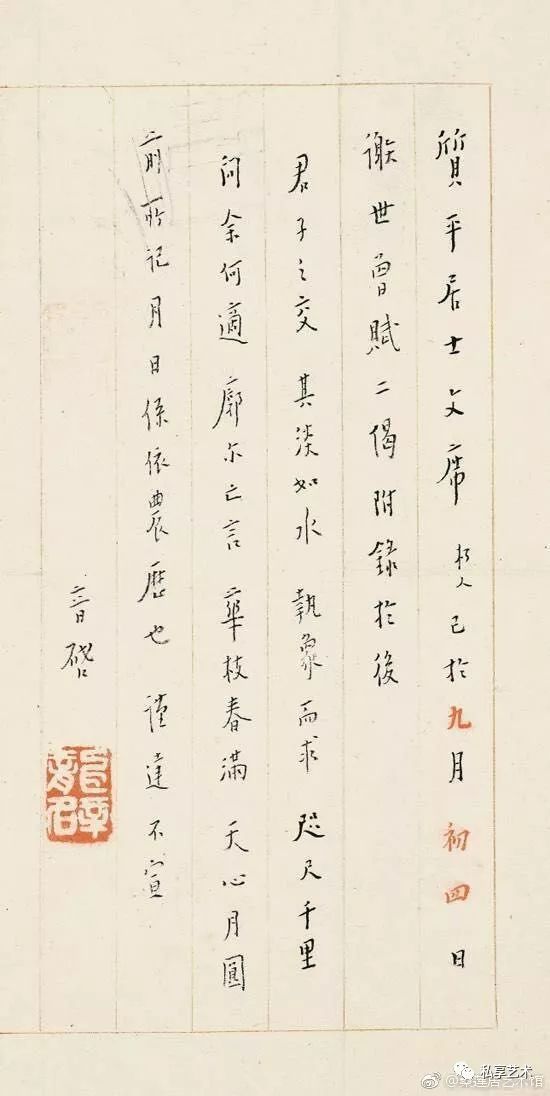 質平居士文席 朽人已於九月初四日
謝世曾賦二偈附錄於後
君子之交 其淡如水 執象而求 咫尺千里
問余何適 廓尔亡言 華枝春滿 天心月圓
前所記月日係依農歷也 謹達 不宣
音啓
私享艺术
@莲居艺术馆